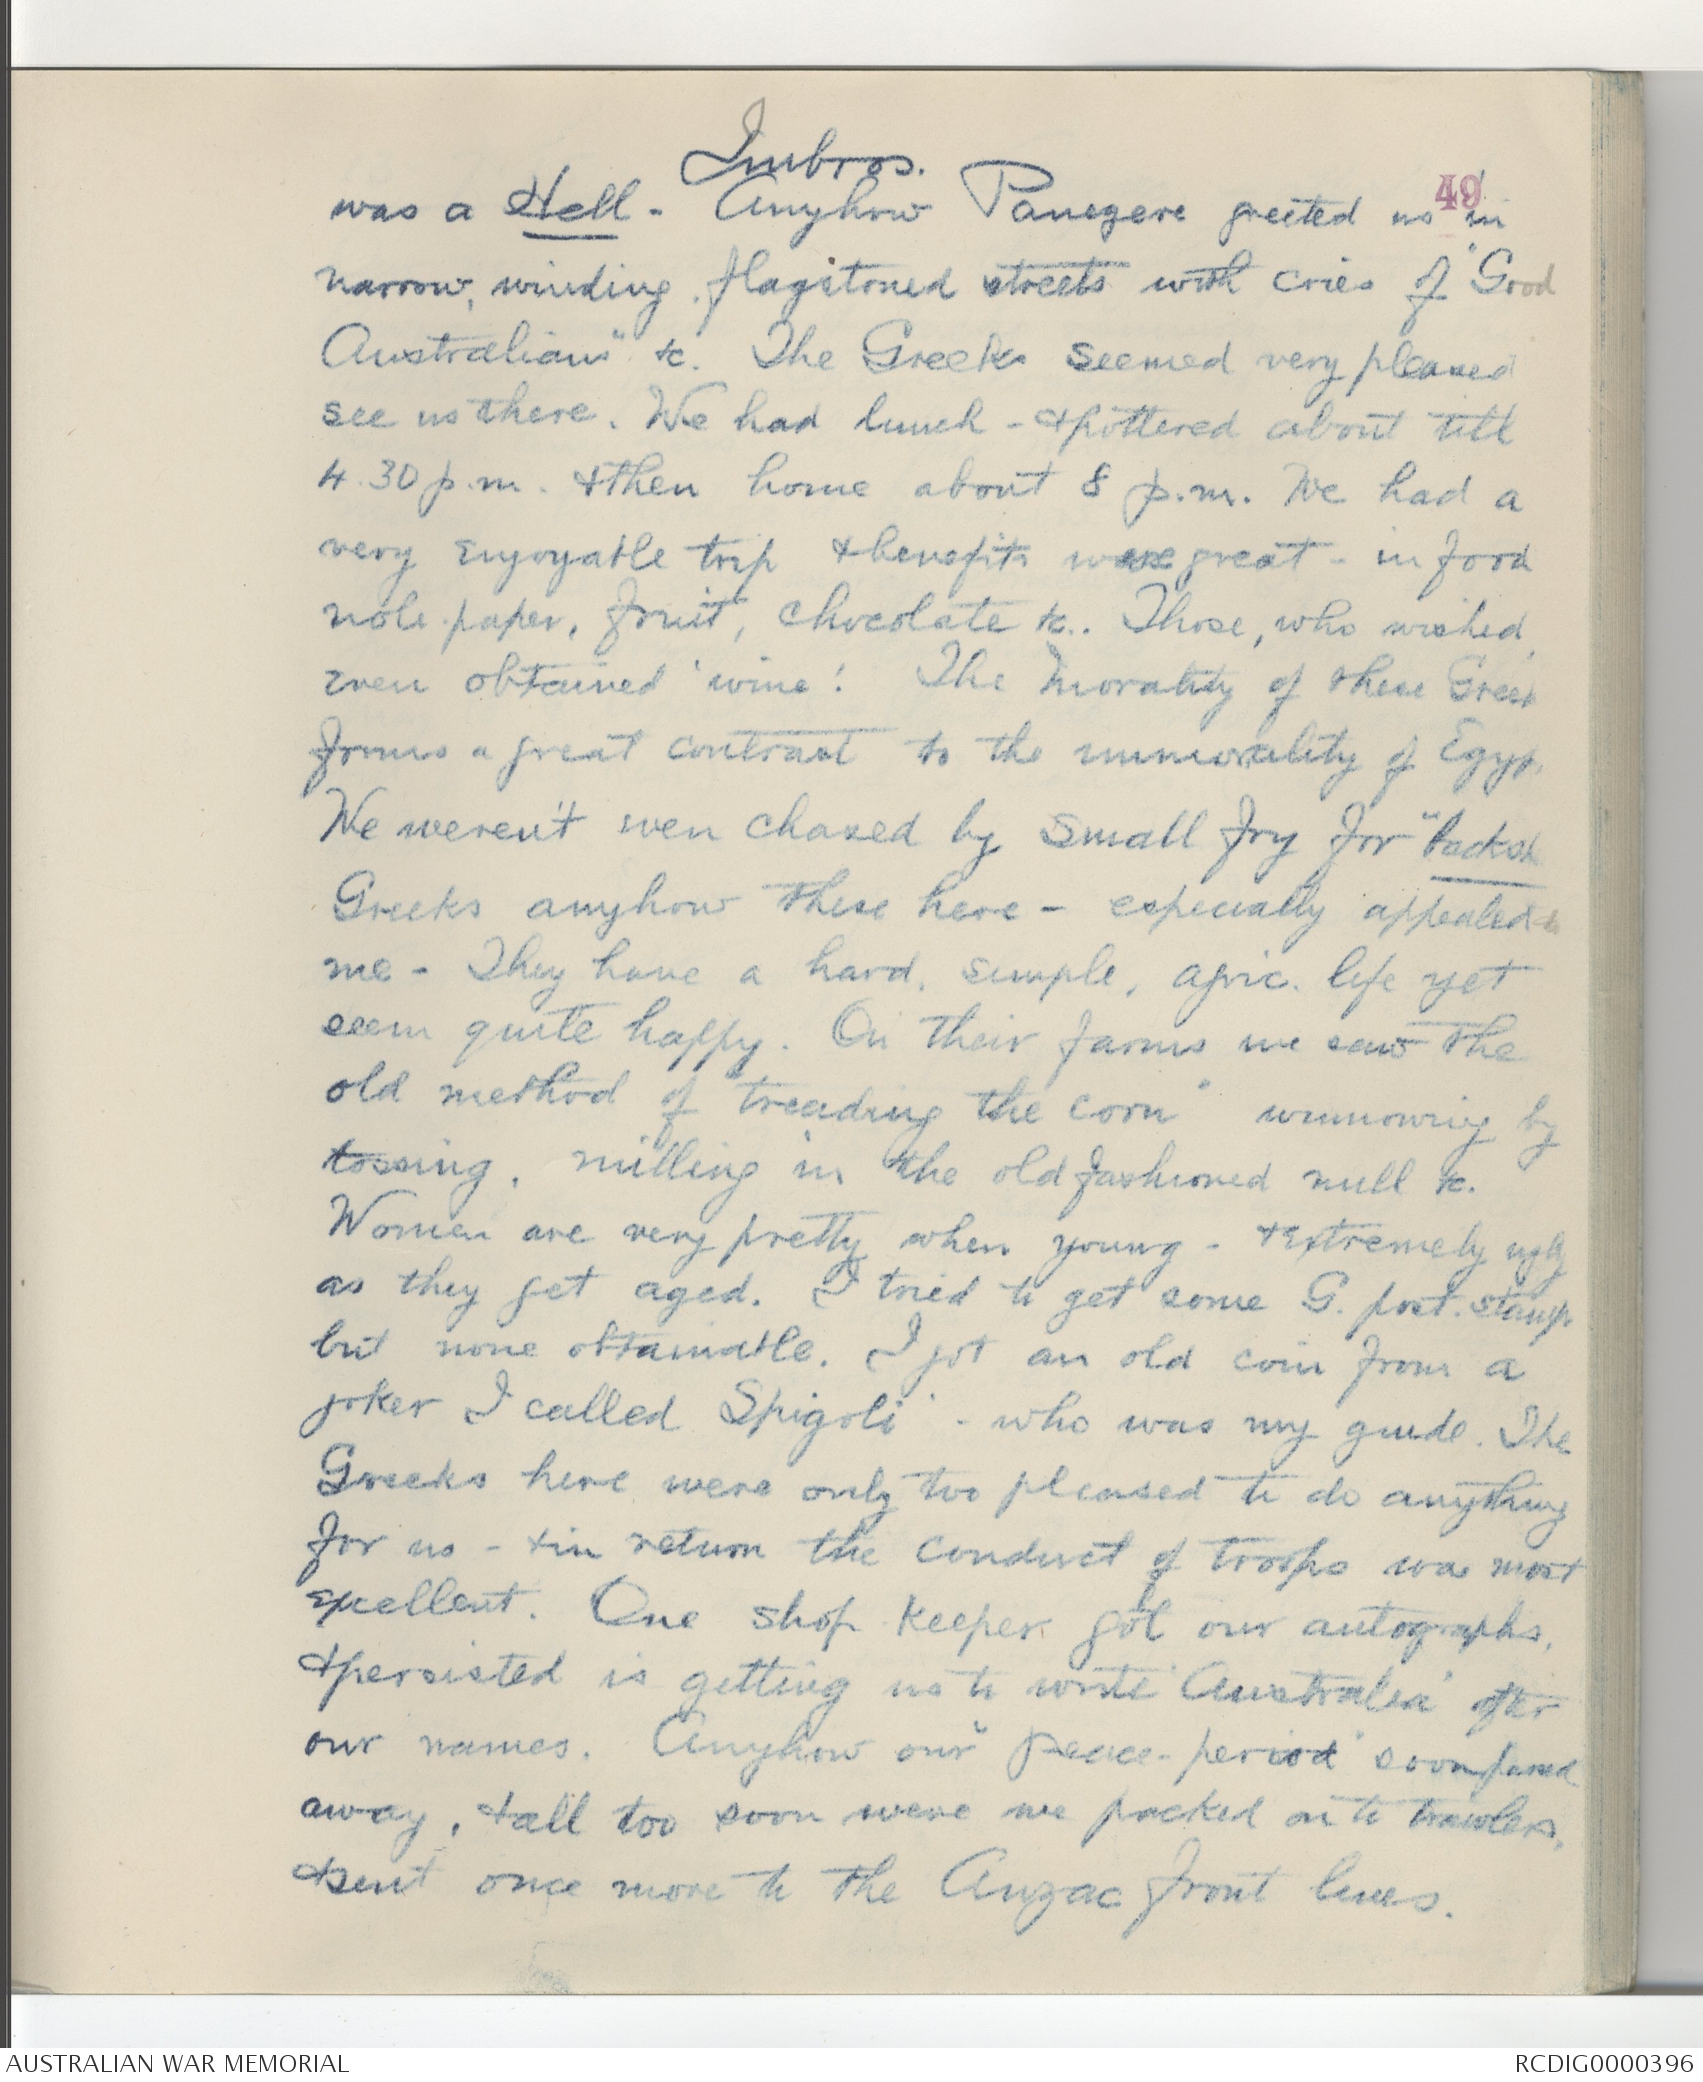 Imbros.
49
was a Hell - Anyhow Panegere greeted us in
narrow, winding, flagstoned streets with cries of "Good
Australians" &c. The Greeks seemed very pleased
see us there. We had lunch - & pottered about till
4.30 p.m. & then home about 8 p.m. We had a
very enjoyable trip & benefits were great - in food
note-paper, fruit, chocolate &c.. Those, who wished,
even obtained 'wine'! The morality of these Greek
forms a great contrast to the immorality of Egyp.
We weren't even chased by small fry for "backsh
Greeks anyhow these here - especially appealed to
me - They have a hard, simple, agric. life yet
seem quite happy. On their farms we saw the
old method of "treading the corn" winnowing by
tossing, milling in the old fashioned mill &c.
Women are very pretty when young - & extremely ugly
as they get aged. I tried to get some G. post. stamp
but none obtainable. I got an old coin from a
joker I called 'Spigoli' - who was my guide. The
Greeks here were only too pleased to do anything
for us - & in return the conduct of troops was most
excellent. One shop keeper got our autographs,
& persisted is getting us to write 'Australia' after
our names. Anyhow our "peace-period" soon passed
away, & all too soon were we packed on to trawlers,
& sent once more to the Anzac front lines.
AUSTRALIAN WAR MEMORIAL
RCDIG0000396